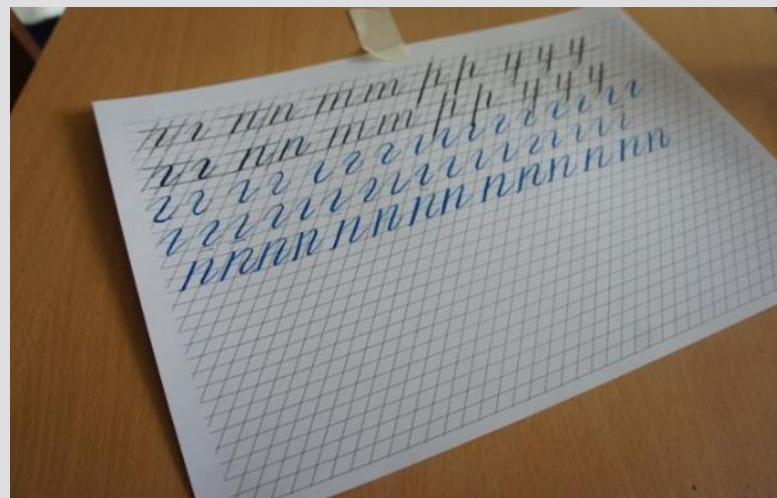 г г п п т т р р у у у
г г п п т т р р у у у
г г г г г г г г г г г г г г г г
г г г г г г г г г г г г г г г г
п п п п п п п п п п п п п п